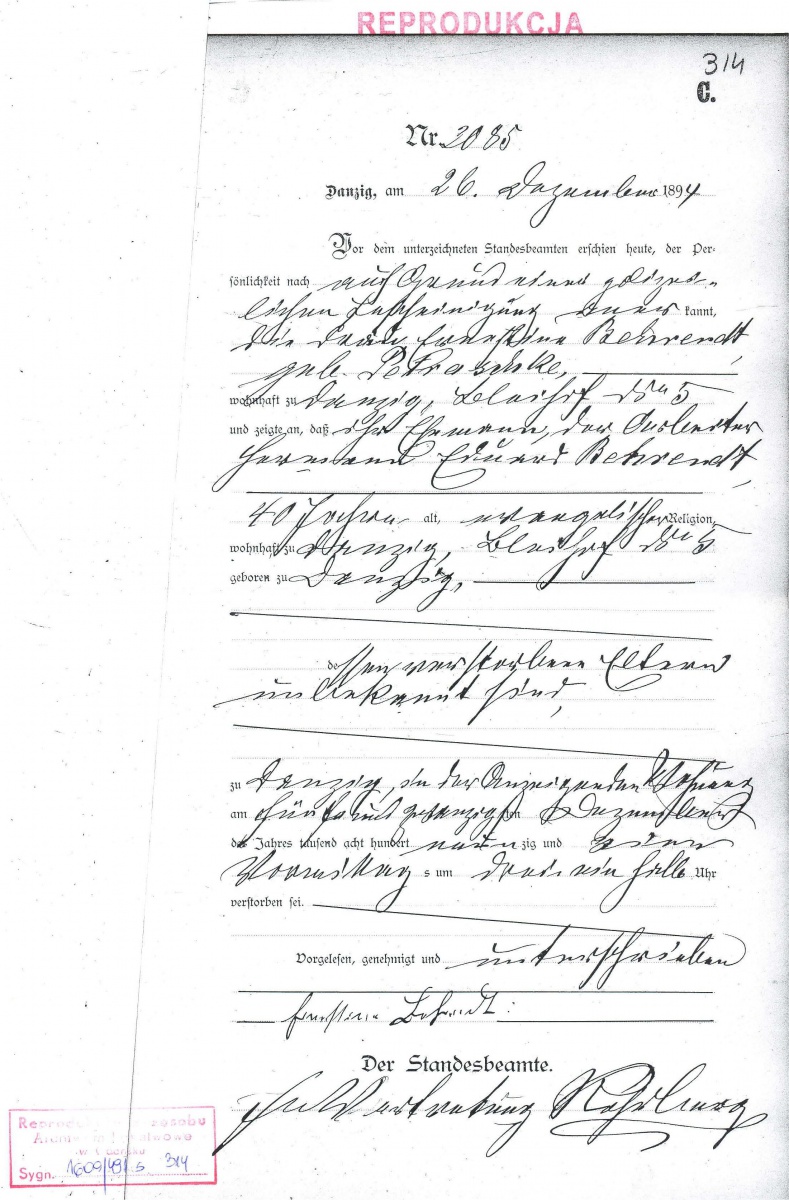 REPRODUKCJA
314
C.
Nr. 2085
Danzig, am 26. Dezember 1894
Vor dem unterzeichneten Standesbeamten erschien heute, der Per-
sönlichkeit nach auf Grund einer polizei-
lichen Bescheinigung aner kannt,
die Frau Ernestine Behrendt,
geb. Petraschke,
wohnhaft zu Danzig, Bleihof No 5
und zeigte an, daß ihr Ehemann, der Arbeiter
Hermann Eduard Behrendt,
40 Jahre alt, evangelischer Religion,
wohnhaft zu Danzig, Bleihof No 5
geboren zu Danzig,
dessen verstorbene Eltern
unbekannt sind,
zu Danzig, in der Anzeigenden Wohnung
am fünf und zwanzigsten Dezember
des Jahres tausend acht hundert neunzig und vier
Vormittags um drei ein halb Uhr
verstorben sei.
Vorgelesen, genehmigt und unterschrieben
Ernestine Behrendt.
Der Standesbeamte.
In Vertretung
w Gdańsku
Sygn. 1609/491 s 314